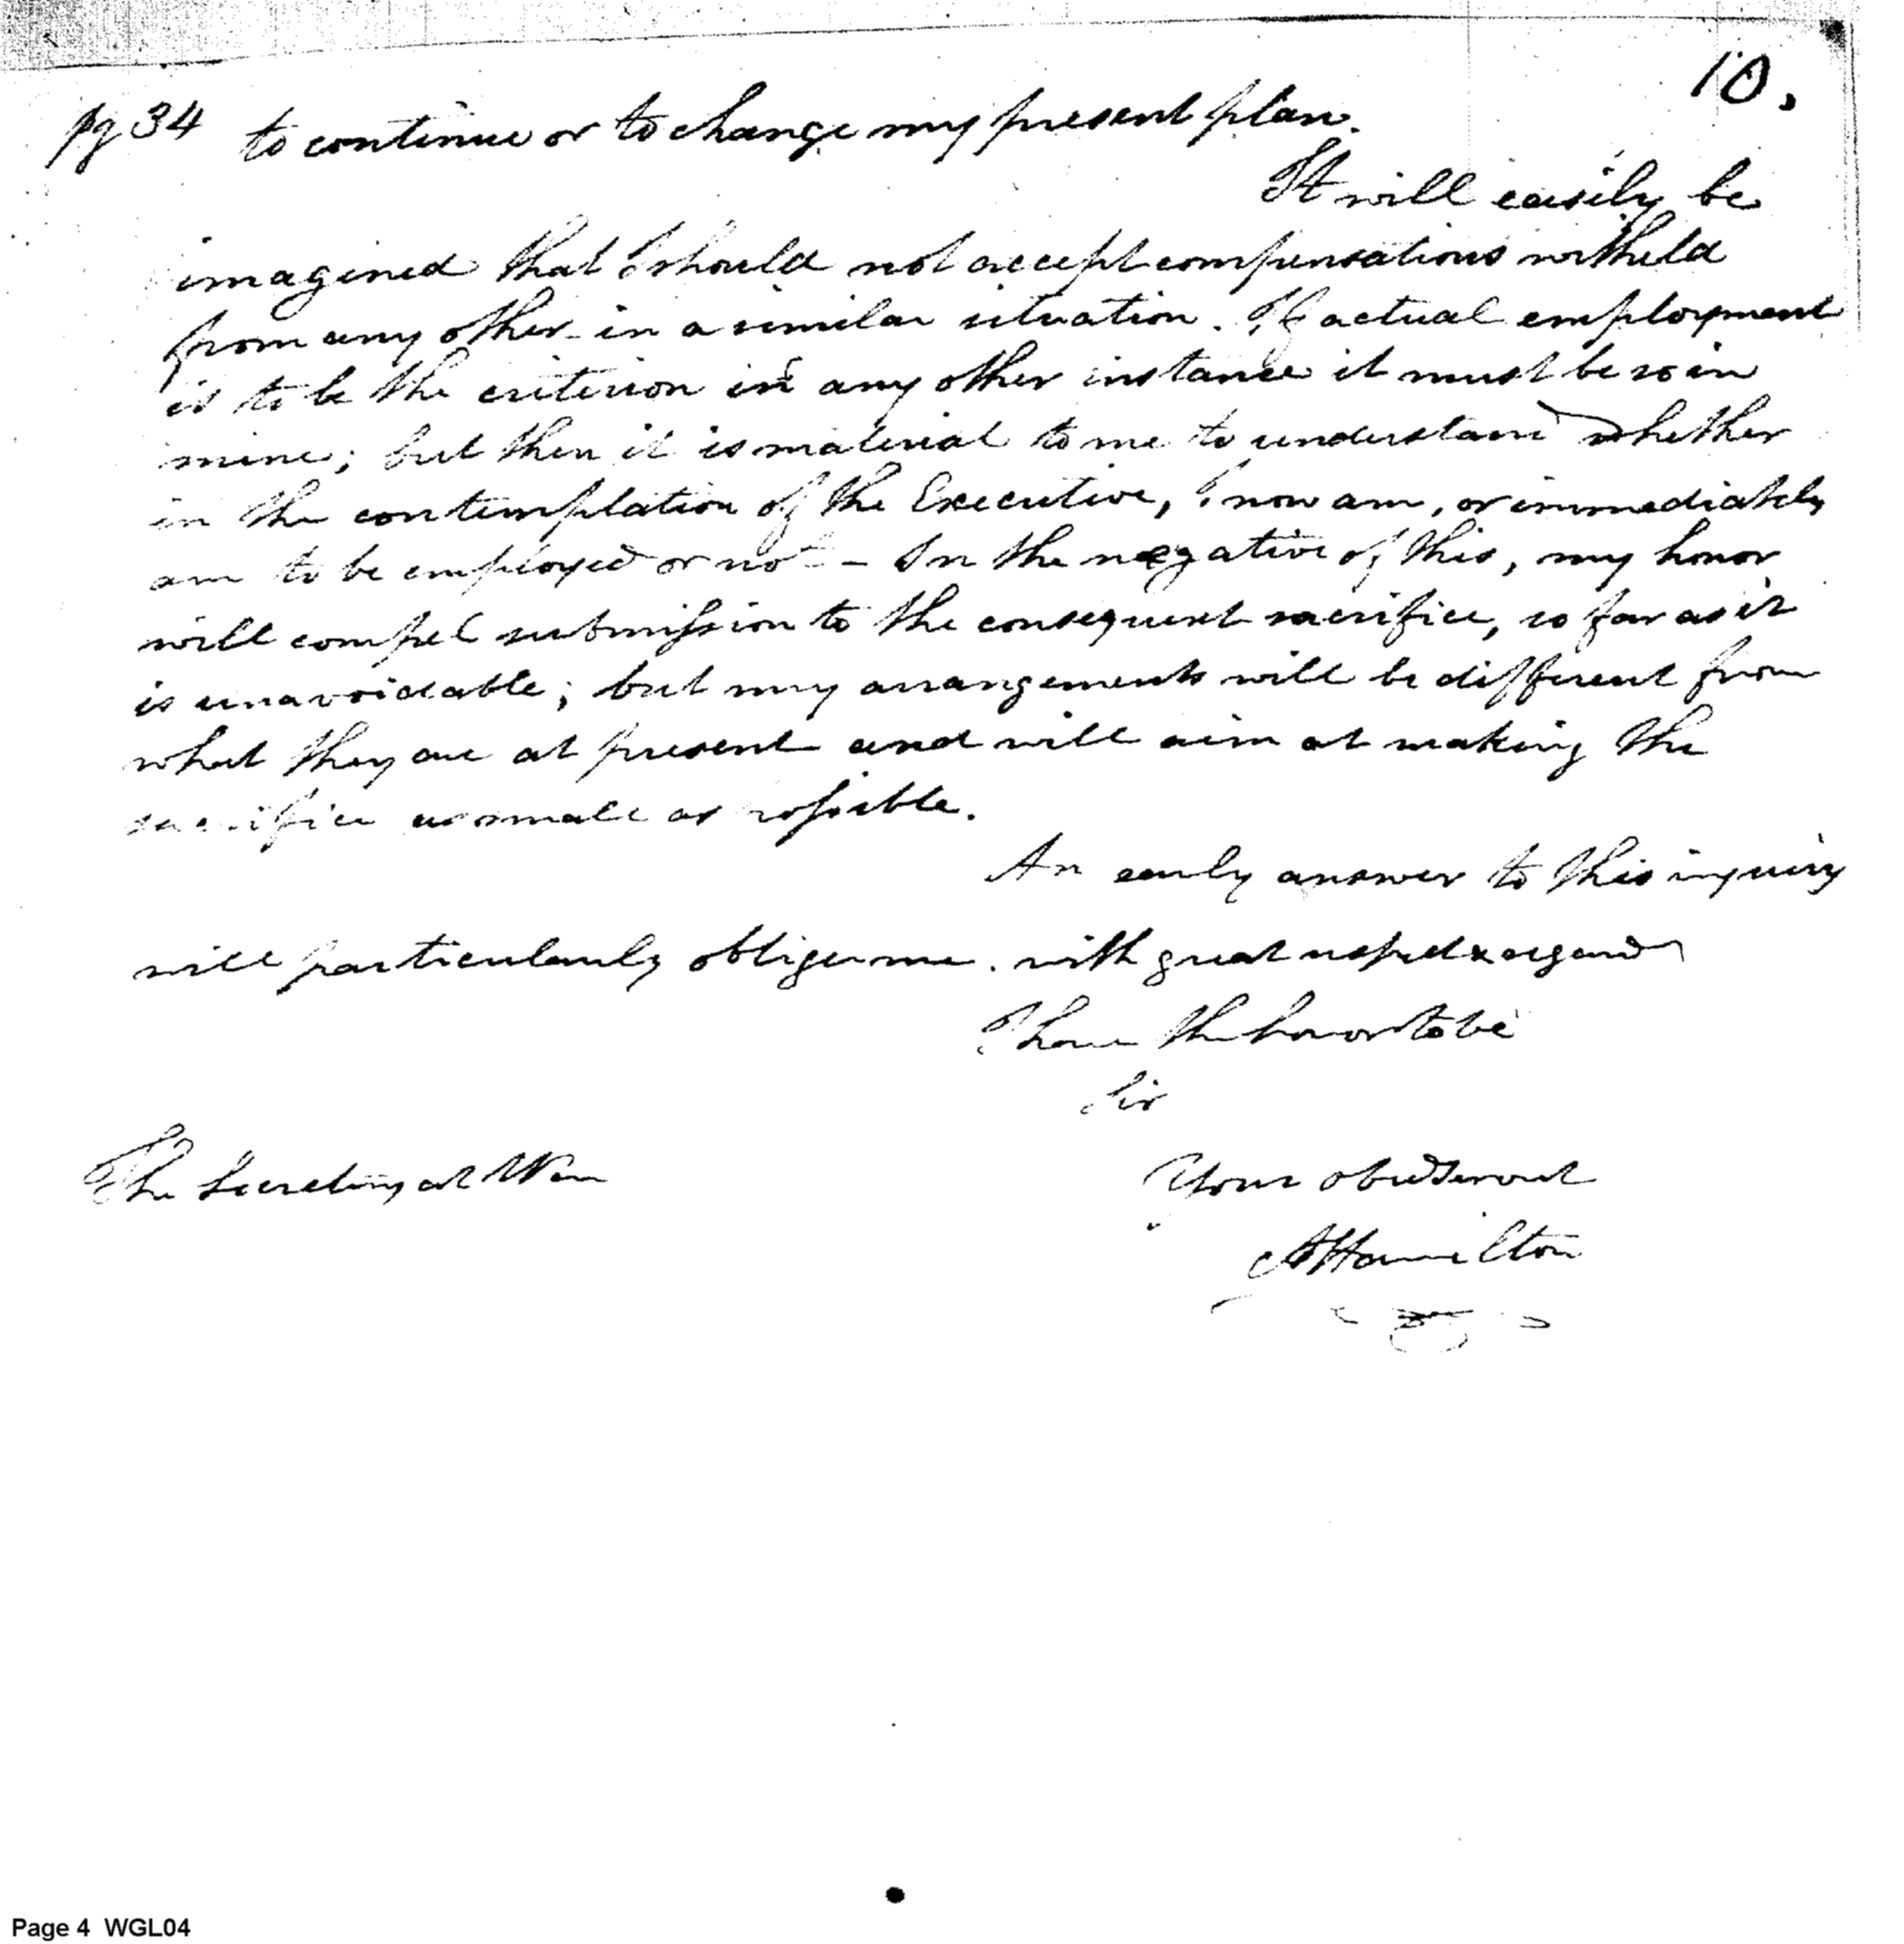 10.
pg 34 to continue or to change my present plan.
It will easily be
imagined that I should not accept compensations witheld
from any other in a similar situation. If actual employment
is to be the criterion in any other instance it must be so in
mine; but then it is material to me to understand whether
in the contemplation of the Executive, I now am, or immediately
am to be employed or not — In the negative of this, my honor
will compel submission to the consequent sacrifice, so far as it
is unavoidable; but my arrangements will be different from
what they are at present and will aim at making the
sacrifice as small as possible.
An early answer to this inquiry
will particularly oblige me. with great respect & regard
I have the honor to be
Sir
The Secretary at War
Your obed Servant
A Hamilton
Page 4 WGL04